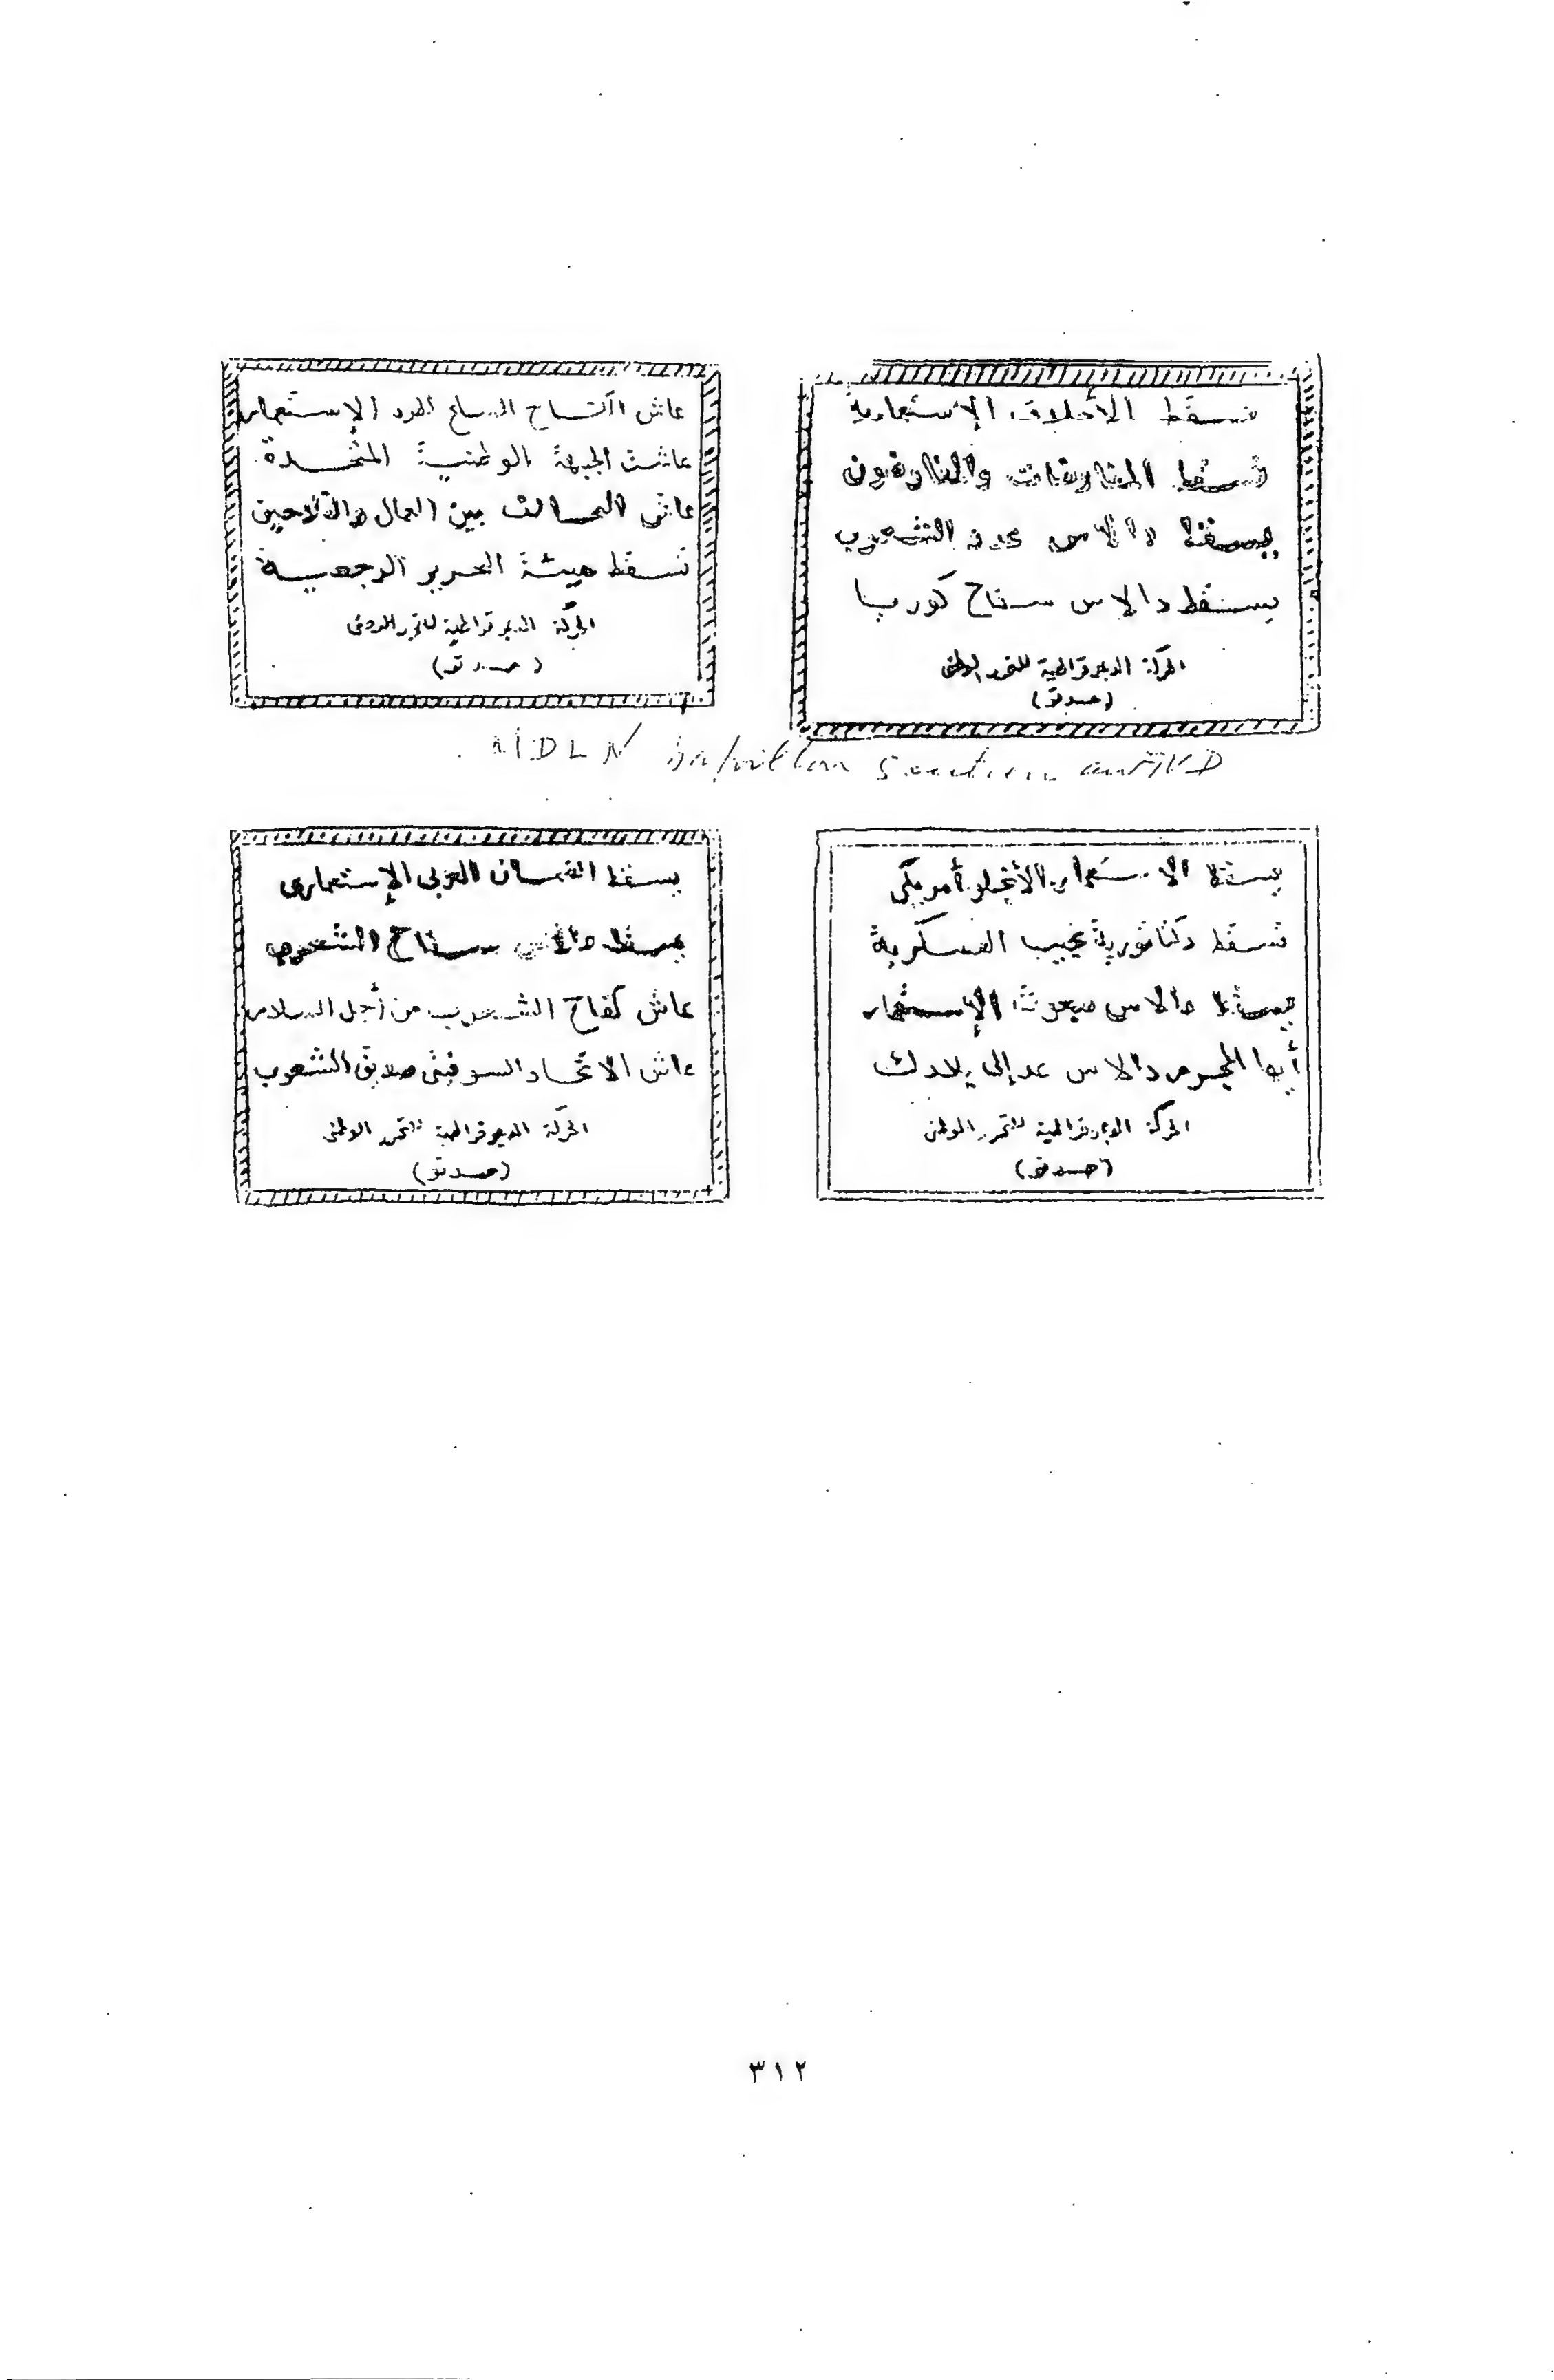 تسقط الأحلاف الإستعمارية
تسقط المفاوضات والمفاوضون
يسقط دالاس عدو الشعوب
يسقط دالاس سفاح كوريا
الحركة الديموقراطية للتحرر الوطنى
(حدتو)
عاش الكفاح المسلح لطرد الإستعمار
عاشت الجبهة الوطنية المتحدة
عاش التحالف بين العمال والفلاحين
تسقط هيئة التحرير الرجعية
الحركة الديموقراطية للتحرر الوطنى
(حدتو)
MDLN papillon
يسقط الاستعمار الأنجلو أمريكى
تسقط دكتاتورية نجيب العسكرية
يسقط دالاس مبعوث الإستعمار
أيها المجرم دالاس عد إلى بلادك
الحركة الديموقراطية للتحرر الوطنى
(حدتو)
يسقط الضمان العربى الإستعمارى
يسقط دالاس سفاح الشعوب
عاش كفاح الشعوب من أجل السلام
عاش الاتحاد السوفيتى صديق الشعوب
الحركة الديموقراطية للتحرر الوطنى
(حدتو)
٣١٢